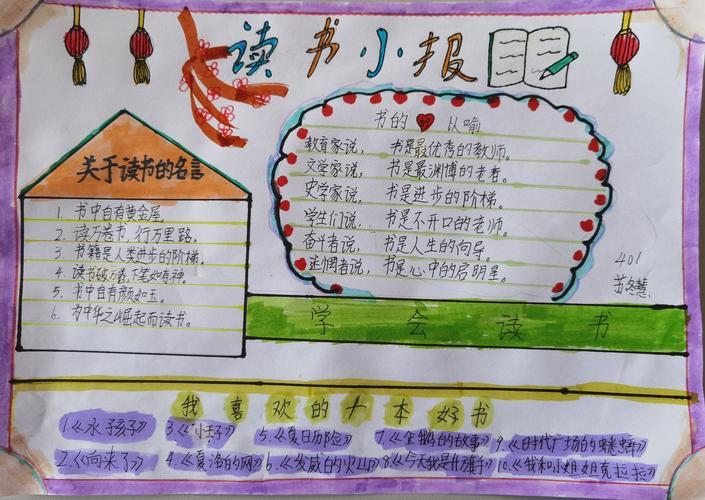 读书小报
关于读书的名言
1. 书中自有黄金屋。
2. 读万卷书,行万里路。
3. 书籍是人类进步的阶梯。
4. 读书破万卷,下笔如有神。
5. 书中自有颜如玉。
6. 为中华之崛起而读书。
书的 认喻
教育家说, 书是最优秀的教师。
文学家说, 书是最渊博的老者。
史学家说, 书是进步的阶梯。
学生们说, 书是不开口的老师。
奋斗者说, 书是人生的向导。
迷惘者说, 书是心中的启明星。
401
学会读书
我喜欢的十本好书
1.《水孩子》 3.《小王子》 5.《夏日历险》 7.《企鹅的故事》 9.《时代广场的蟋蟀》
2.《向来了》 4.《夏洛的网》 6.《发威的火山》 8.《今天我是升旗手》 10.《我和小姐姐克拉拉》